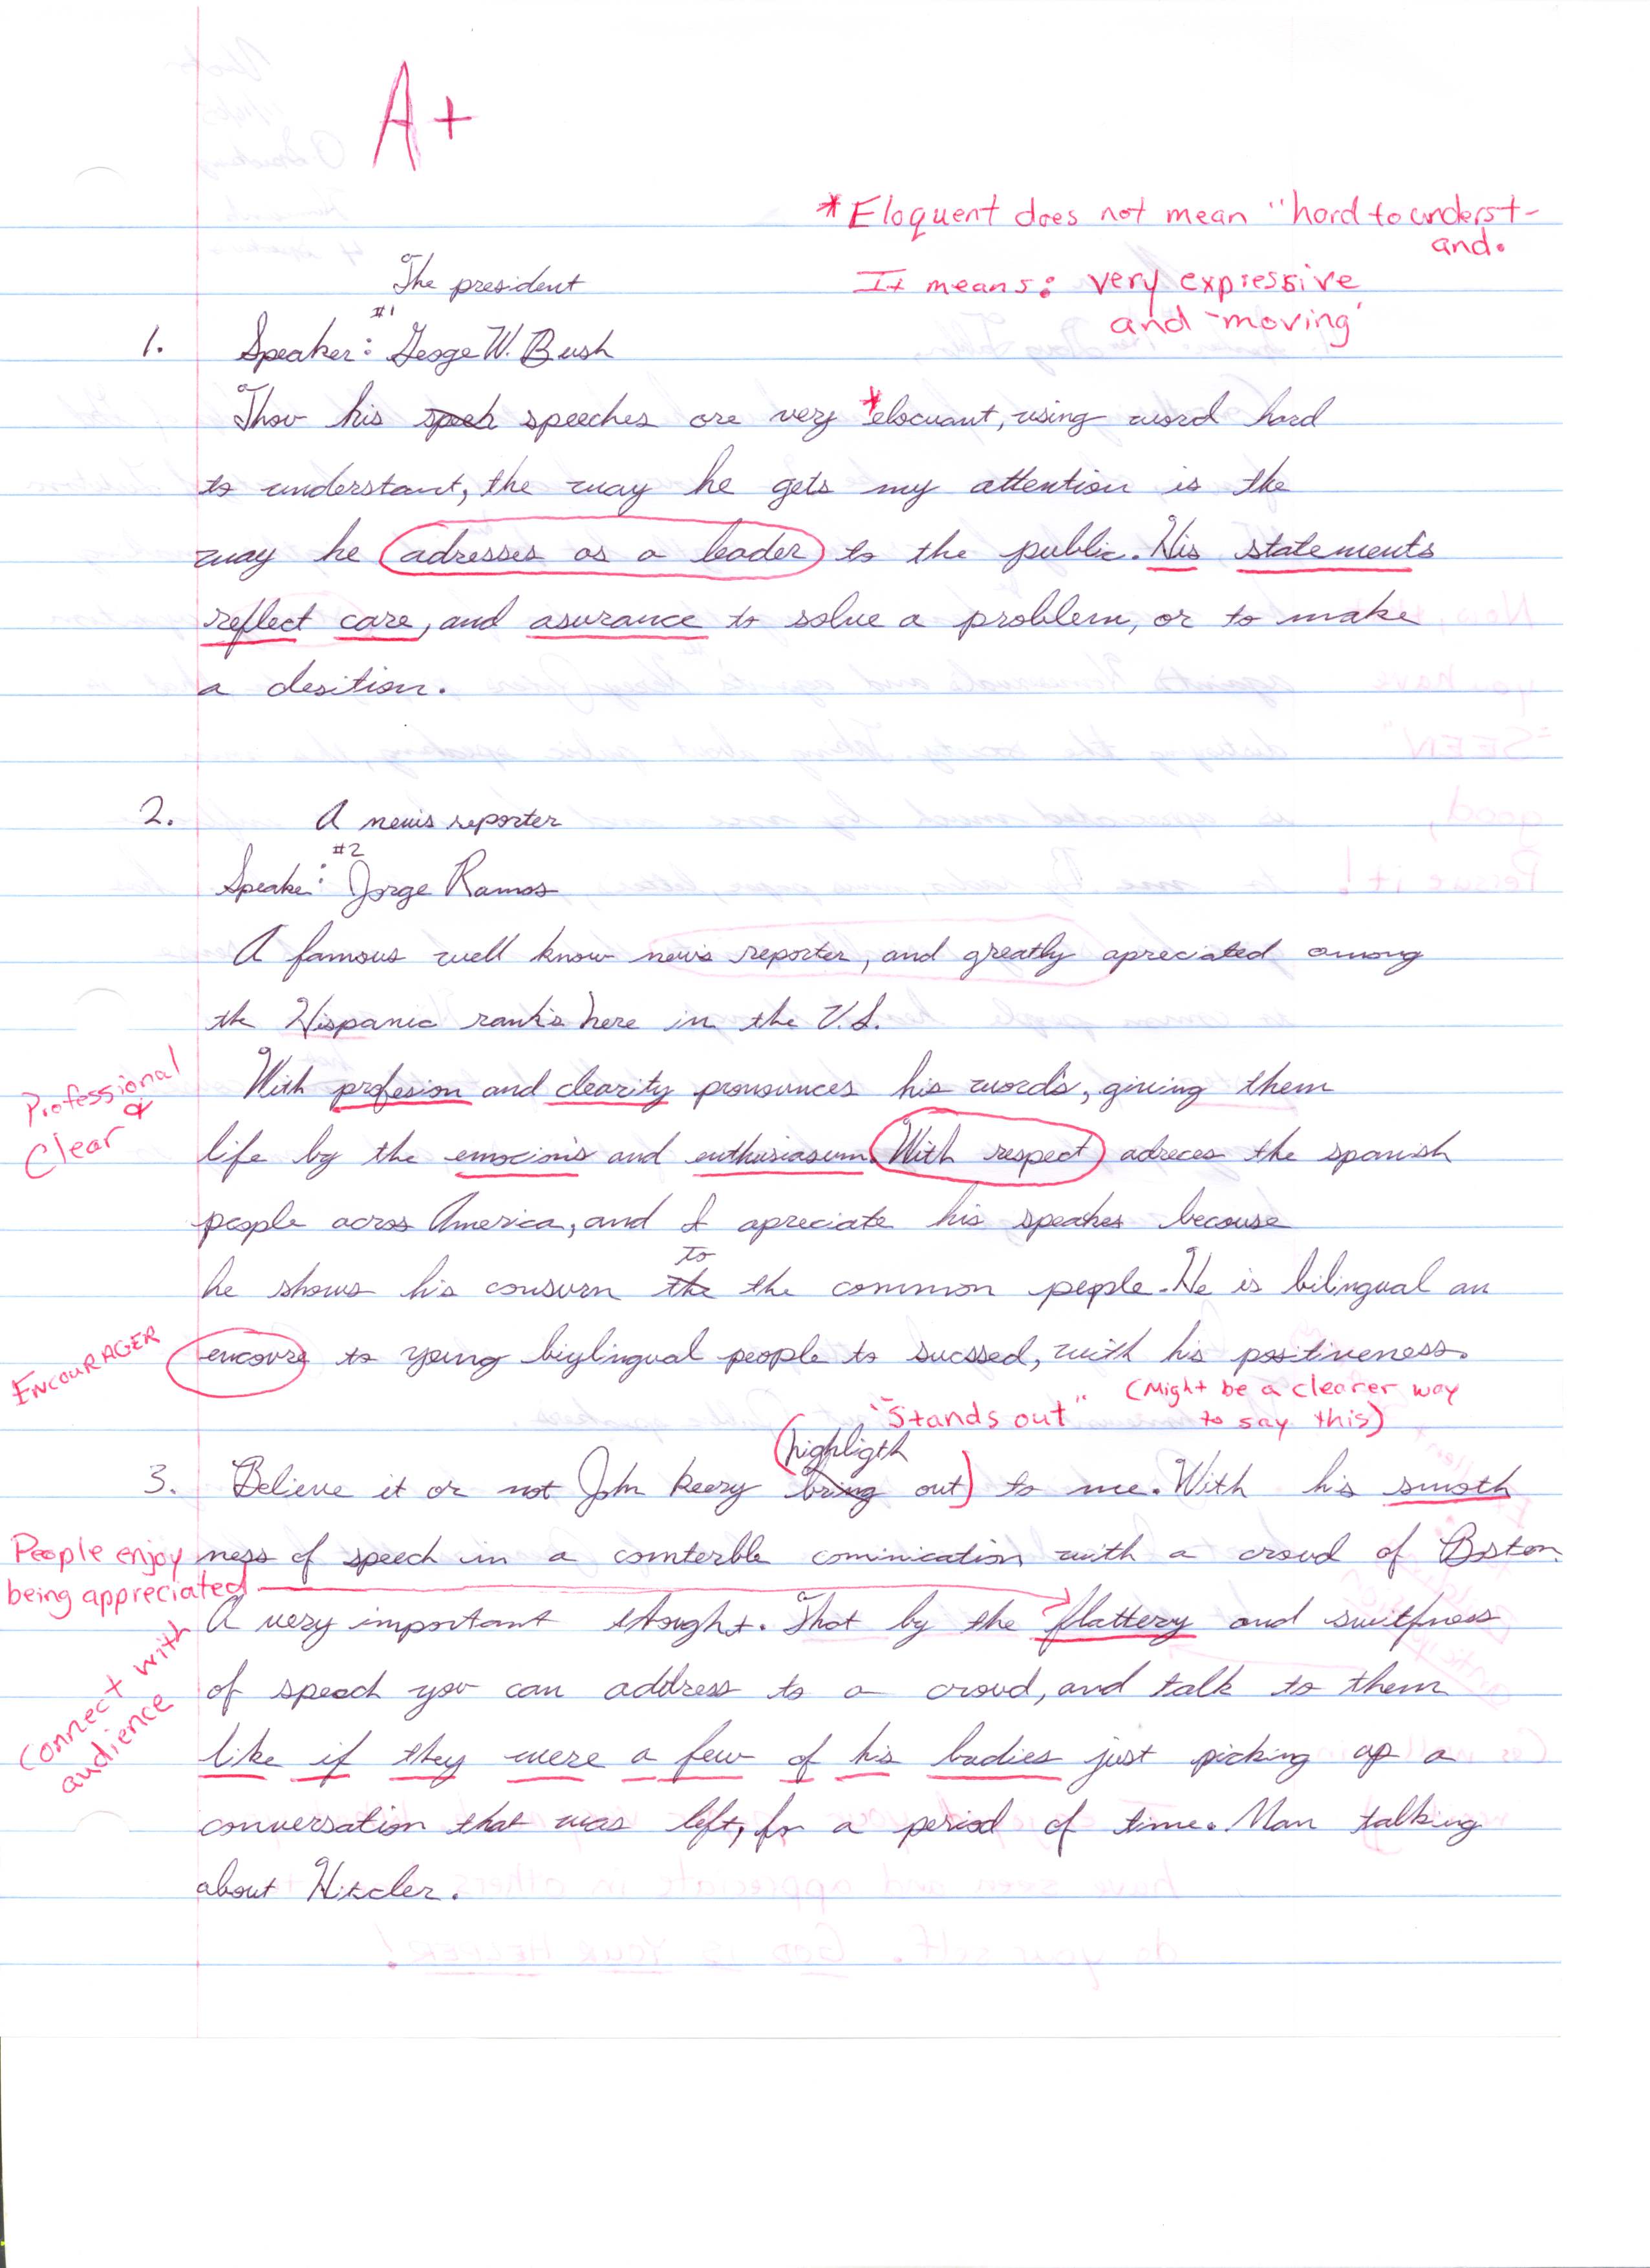 A+
*Eloquent does not mean "hard to underst-
and.
It means: very expressive
and "moving"
The president
#1
1. Speaker: Geoge W. Bush
Thou his speech speeches are very *elocuant, using word hard
to understant, the way he gets my attention is the
way he adresses as a leader to the public. His statements
reflect care, and asurance to solve a problem, or to make
a desition.
2. A news reporter
#2
Speaker: Jorge Ramos
A famous well know news reporter, and greatly apreciated among
the Hispanic rank's here in the U.S.
Professional &
Clear
With profesion and clearity pronounces his words, giving them
life by the emocions and enthusiasum. With respect adreces the spanish
people across America, and I apreciate his speaches becouse
to
he shows his consurn the the common people. He is bilingual an
ENCOURAGER
encoure to young biylingual people to sucssed, with his positiveness.
"Stands out" (Might be a clearer way
to say this)
highligth
3. Believe it or not John Keery bring out to me. With his smoth
People enjoy
being appreciated
ness of speech in a comterble cominication with a croud of Boston.
A very important thought. That by the flattery and switfness
Connect with
audience
of speech you can address to a croud, and talk to them
like if they were a few of his budies just picking up a
conversation that was left, for a period of time. Man talking
about Hitcler.